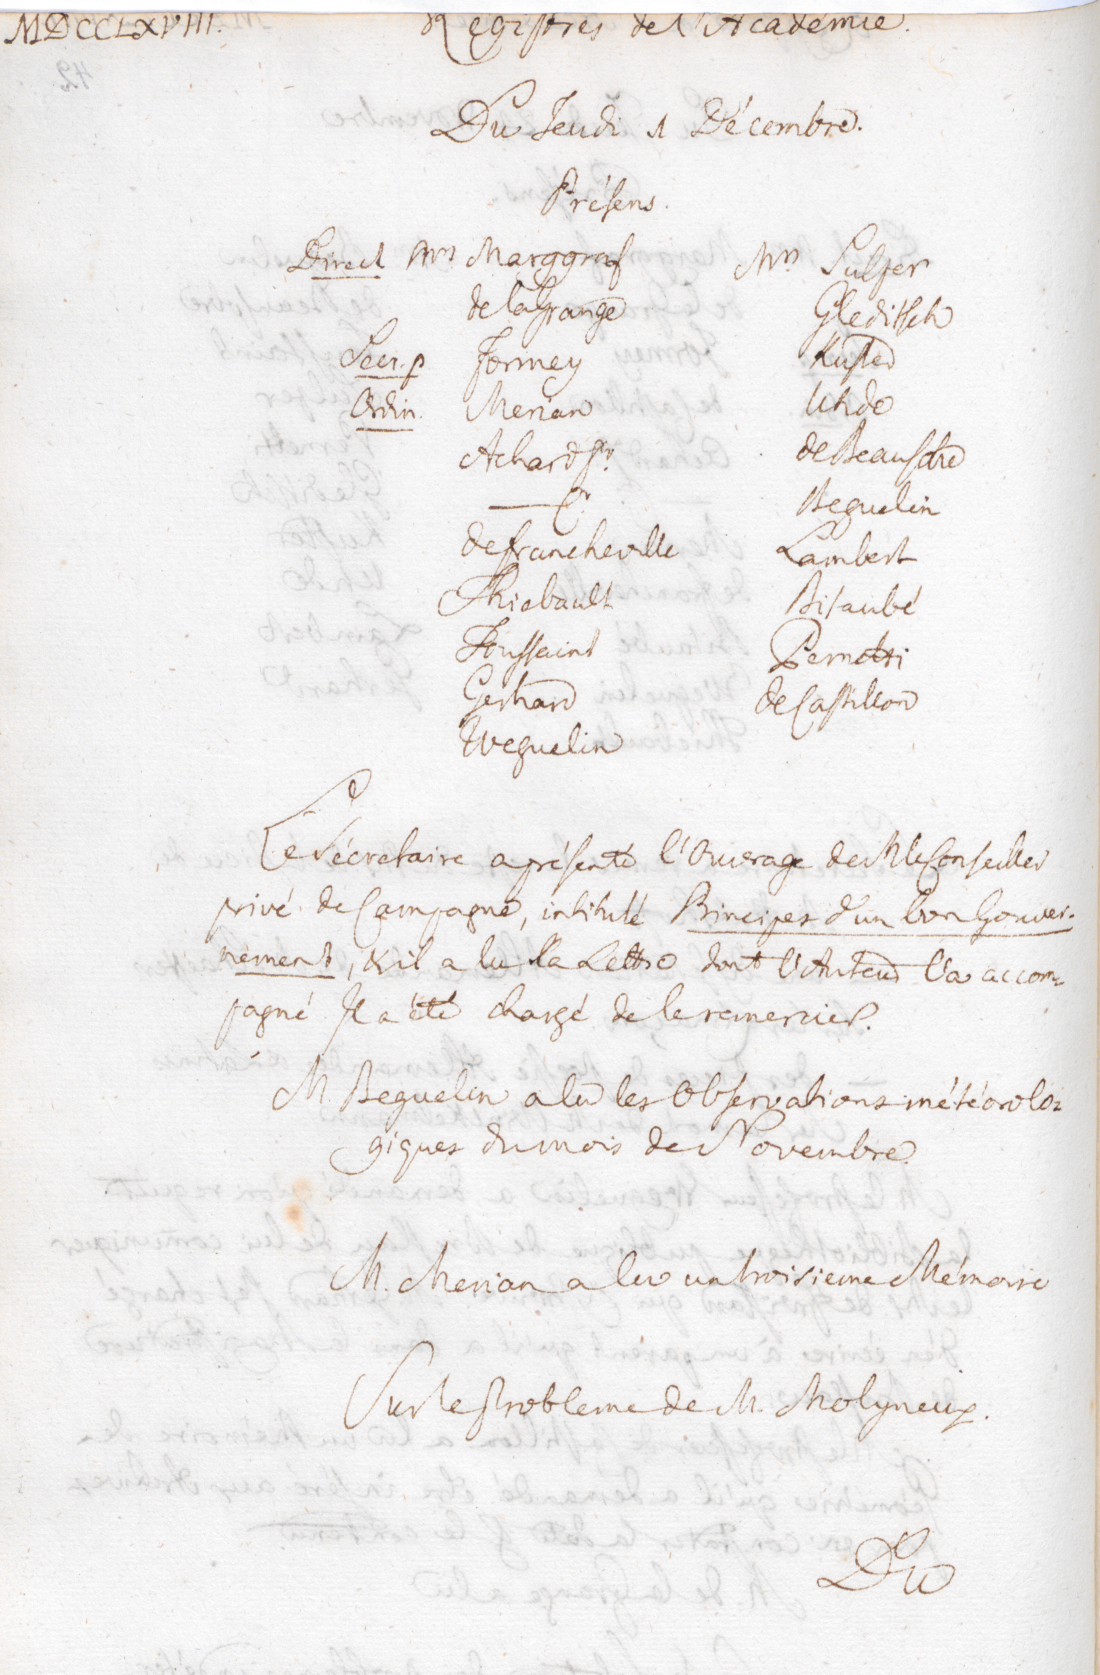 MDCCLXVIII. Registres de l'Académie.
Du Jeudi 1 Décembre.
Présens.
Direct Mrs Marggraf Mrs Sulzer
de la Grange Gleditsch
Secr. p Formey Kuster
Ordin. Merian Uhde
Achard pr. de Beausobre
— Beguelin
de Francheville Lambert
Thiebault Bitaubé
Toussaint Pernetti
Gerhard de Castillon
Weguelin
Le Sécretaire a présenté l'Ouvrage de M le Conseiller
privé de Campagne, intitulé Principes d'un bon Gouver-
nement, & il a lu la Lettre dont l'Auteur l'a accom-
pagné. Il a été chargé de le remercier.
M. Beguelin a lu les Observations météorolo-
giques du mois de Novembre.
M. Merian a lu un troisieme Mémoire
Sur le Probleme de M. Molyneux.
Du